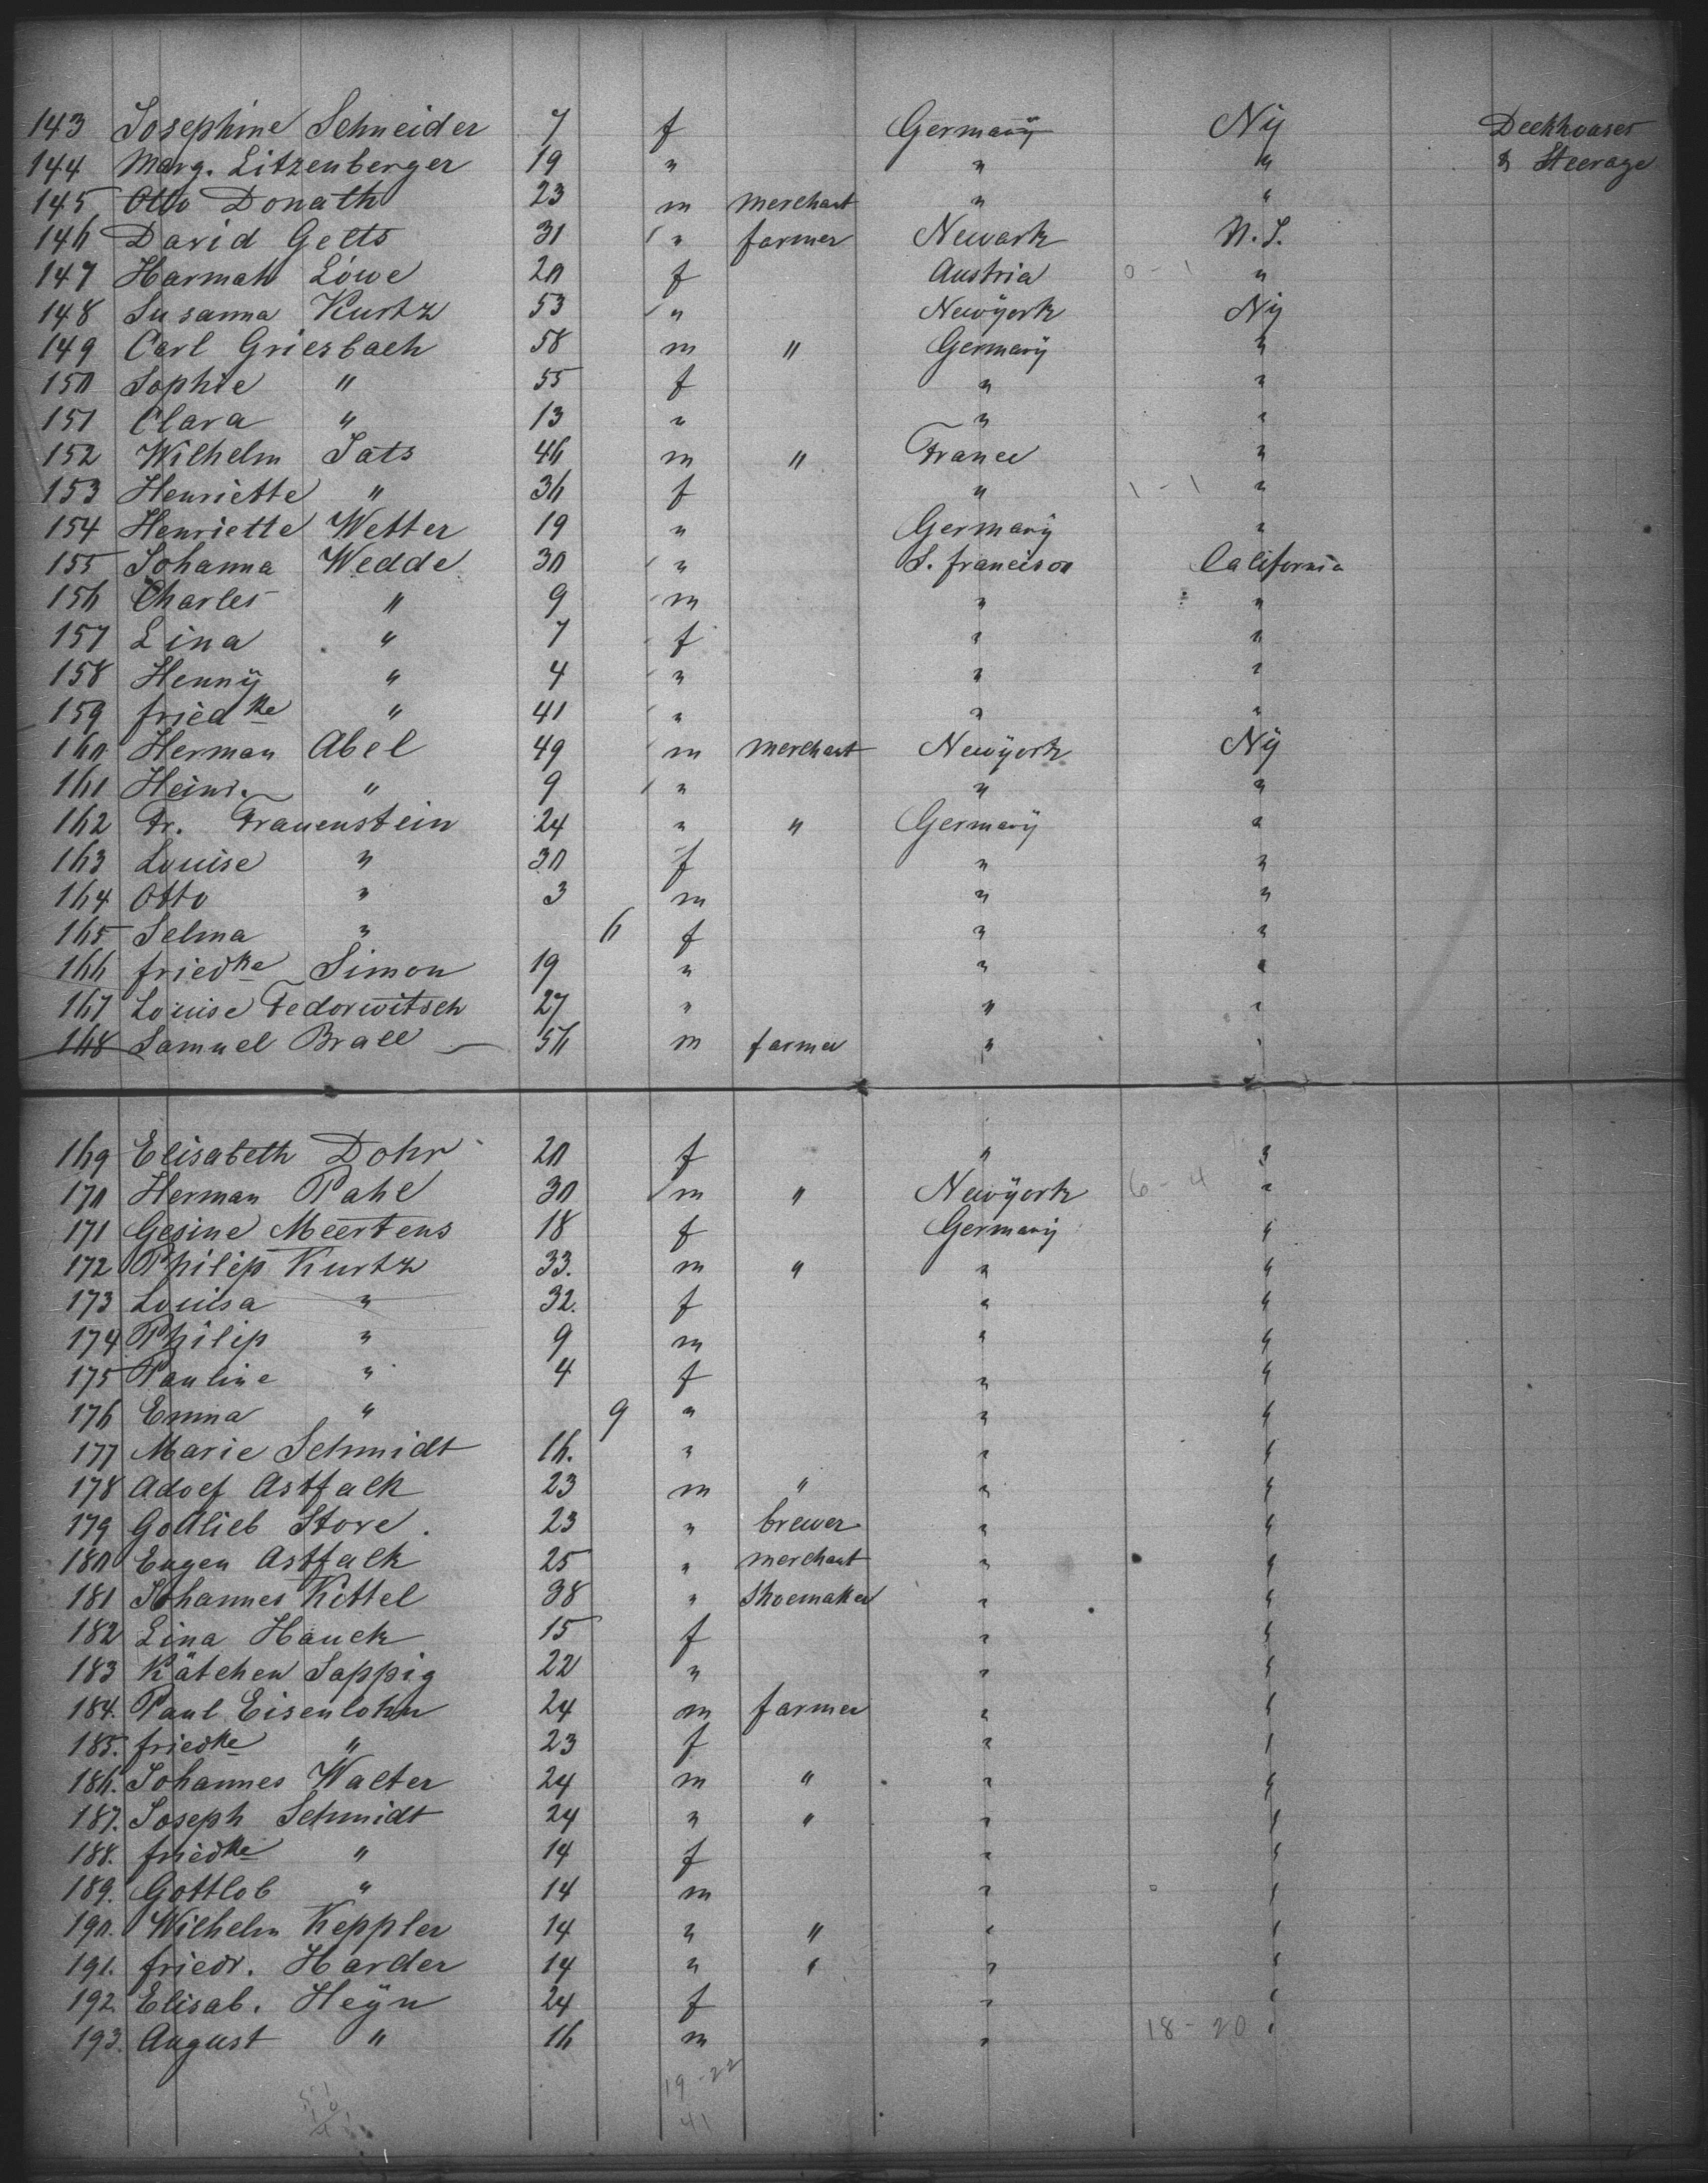 143 Josephine Schneider 7 f Germanÿ Nÿ Deckhouses
144 Marg. Litzenberger 19 " " " & Steerage
145 Otto Donath 23 m merchant " "
146 David Gelts 31 " farmer Newark N.J.
147 Hannah Löwe 20 f Austria 0 - 1 "
148 Susanna Kurtz 53 " Newÿork Nÿ
149 Carl Griesbach 58 m " Germanÿ "
150 Sophie " 55 f " "
151 Clara " 13 " " "
152 Wilhelm Jats 46 m " France "
153 Henriette " 36 f " 1 - 1 "
154 Henriette Wetter 19 " Germanÿ "
155 Johanna Wedde 30 " S. francisco California
156 Charles " 9 m " "
157 Lina " 7 f " "
158 Hennÿ " 4 " " "
159 friedke " 41 " " "
160 Herman Abel 49 m merchant Newÿork Nÿ
161 Heinr. " 9 " " "
162 Fr. Frauenstein 24 " " Germanÿ "
163 Louise " 30 f " "
164 Otto " 3 m " "
165 Selma " 6 f " "
166 friedke Simon 19 " " "
167 Louise Fedorwitsch 27 " " "
168 Samuel Brall 56 m farmer " "
169 Elisabeth Dohr 20 f " "
170 Herman Pahl 30 m " Newÿork 6 - 4 "
171 Gesine Meertens 18 f Germanÿ "
172 Philip Kurtz 33. m " " "
173 Louisa " 32. f " "
174 Philip " 9 m " "
175 Pauline " 4 f " "
176 Emma " 9 " " "
177 Marie Schmidt 16. " " "
178 Adolf Astfalk 23 m " " "
179 Gottlieb Store. 23 " brewer " "
180 Eugen Astfalk 25 " merchant " "
181 Johannes Kittel 38 " Shoemaker " "
182 Lina Hauck 15 f " "
183 Kätchen Sappig 22 " " "
184. Paul Eisenlohn 24 m farmer " "
185. friedke " 23 f " "
186. Johannes Walter 24 m " " "
187. Joseph Schmidt 24 " " " "
188. friedke " 14 f " "
189. Gottlob " 14 m " "
190. Wilhelm Keppler 14 " " " "
191. friedr. Harder 14 " " " "
192 Elisab. Heÿn 24 f " "
193. August " 16 m " 18 - 20 "
19 - 22
41